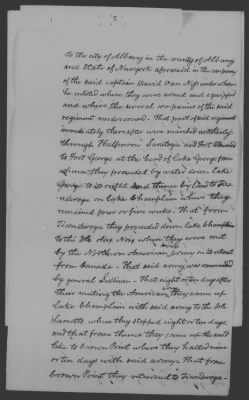 to the city of Albany in the county of Albany
and State of Newyork aforesaid in the company
of the said captain David Van Ness under whom
he enlisted where they were armed and equipped
and where the several companies of the said
regiment rendezvoused - That part of said regiment
immediately thereafter were marched northerly
through Halfmoon Saratoga and Fort
to Fort George at the head of Lake George from
whence they proceeded by water down Lake
George to its outlet and thence by land to Tico
nderoga on Lake Champlain where they
remained four or five weeks. That from
Ticonderoga they proceeded down Lake Champlain
to the Isle Aux Noix where they were met
by the Northern American Army on its retreat
from Canada - That said army was commanded
by general Sullivan - That eight or ten days after
their meeting the Americans they came up
Lake Champlain with said army to the Isle
Lamotte where they stopped eight or ten days
and that from thence they came up the said
lake to Crown Point where they halted nine
or ten days with said army - That from
Crown Point they returned to Ticonderoga -